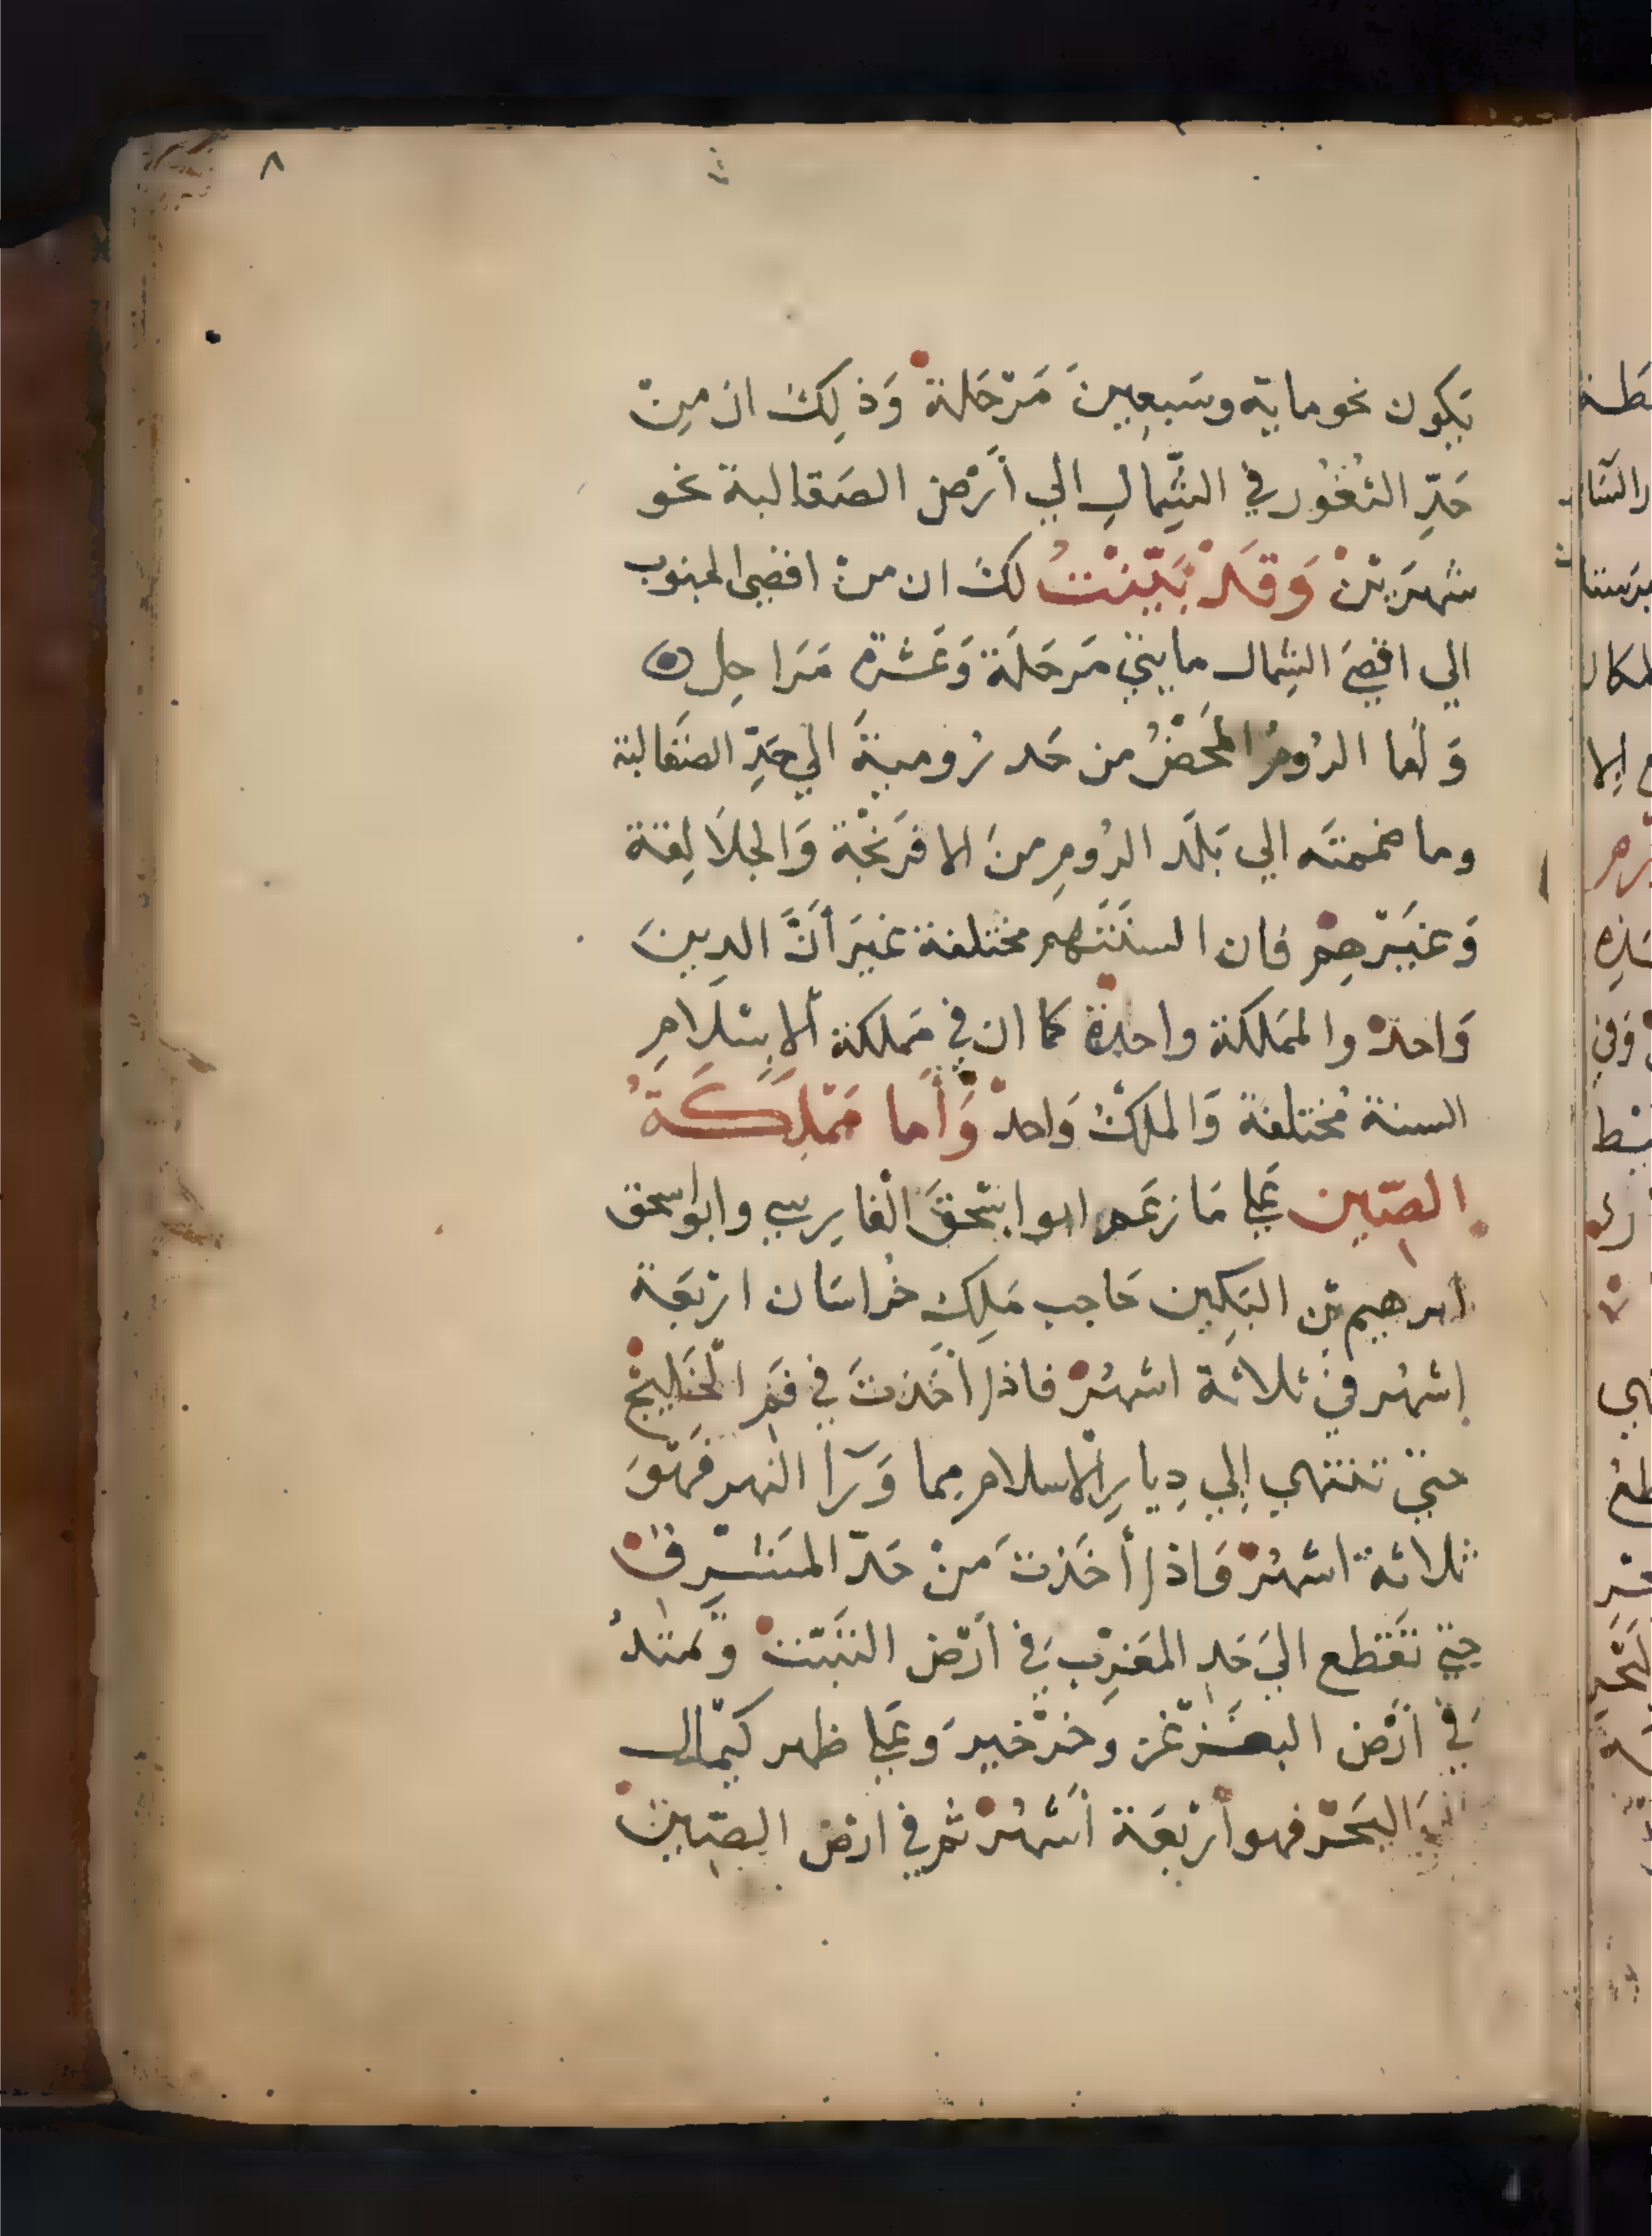 ٨
يكون نحو ماية وسَبعِينَ مَرْحَلة وَذلِكَ ان مِنْ
حَدِّ الثغُور في الشِّمالِ الي أَرْض الصَقالبة نحو
شهرَيْن وَقَدْ بَيَّنْتُ لكَ ان منْ اقصَى الجنوب
الي اقصَى الشِمال مايتي مَرحَلَة وَعَشرة مَرَاحِل
وَأما الرُومُ المَحَضُ من حَد رُوميةَ الي حَدِّ الصَقالبة
وما ضممته الي بَلَد الرُومِ مِنَ الافرَنجْة وَالجلاَلِقة
وَغيَرهِمْ فان السنَتَهم مختلفة غيَر أنَّ الدِينَ
وَاحدْ والمَملكة واحدة كما ان في مَملكة الاِسْلامِ
السنة مُختلفة وَالملكْ وَاحدْ وَأما مَمْلكَةُ
الصِّين عَلي مَا زعَم ابو اسْحقَ الفارسِي وابو اسحق
ابرهيم بْن البَكِين حَاجب مَلِكِ خُراسَان ارْبَعَة
اشهُر في ثلاثة اشهُرْ فاذا أخَذتَ في فَمِ الخَلِيجْ
حتي تنتهي إلي دِيارِ الاسلام مما وَرَآ النهر فَهْوَ
ثلاثة اشهُرْ فَاذا أخَذتَ مَنْ حَدّ المَشْرِق
حتي تَقَطع اليَ حَدِ المَغرِب في أَرْض التبَّتْ وَتمتدُ
في أَرْض البغَزْغز وخرْخيز وَعَلي ظهر كيمَاك
اليَ البَحَرْ فهو أرْبَعَة أشهُرْ ثم في ارْض الصِّين